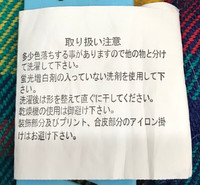 取り扱い注意
多少色落ちする事がありますので他の物と分け
て洗濯して下さい。
蛍光増白剤の入っていない洗剤を使用して下
さい。
洗濯後は形を整えて直ぐに干してください。
乾燥機の使用は御避け下さい。
装飾部分及びプリント、合皮部分のアイロン掛け
はお避け下さい。